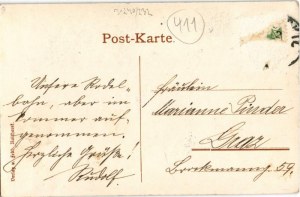 411
Post-Karte.
Unsere Rodel-
bahn, aber im
Sommer auf-
genommen.
Herzliche Grüße!
Rudolf.
Fräulein
Marianne Pinder
Graz
Brockmanng. 59.